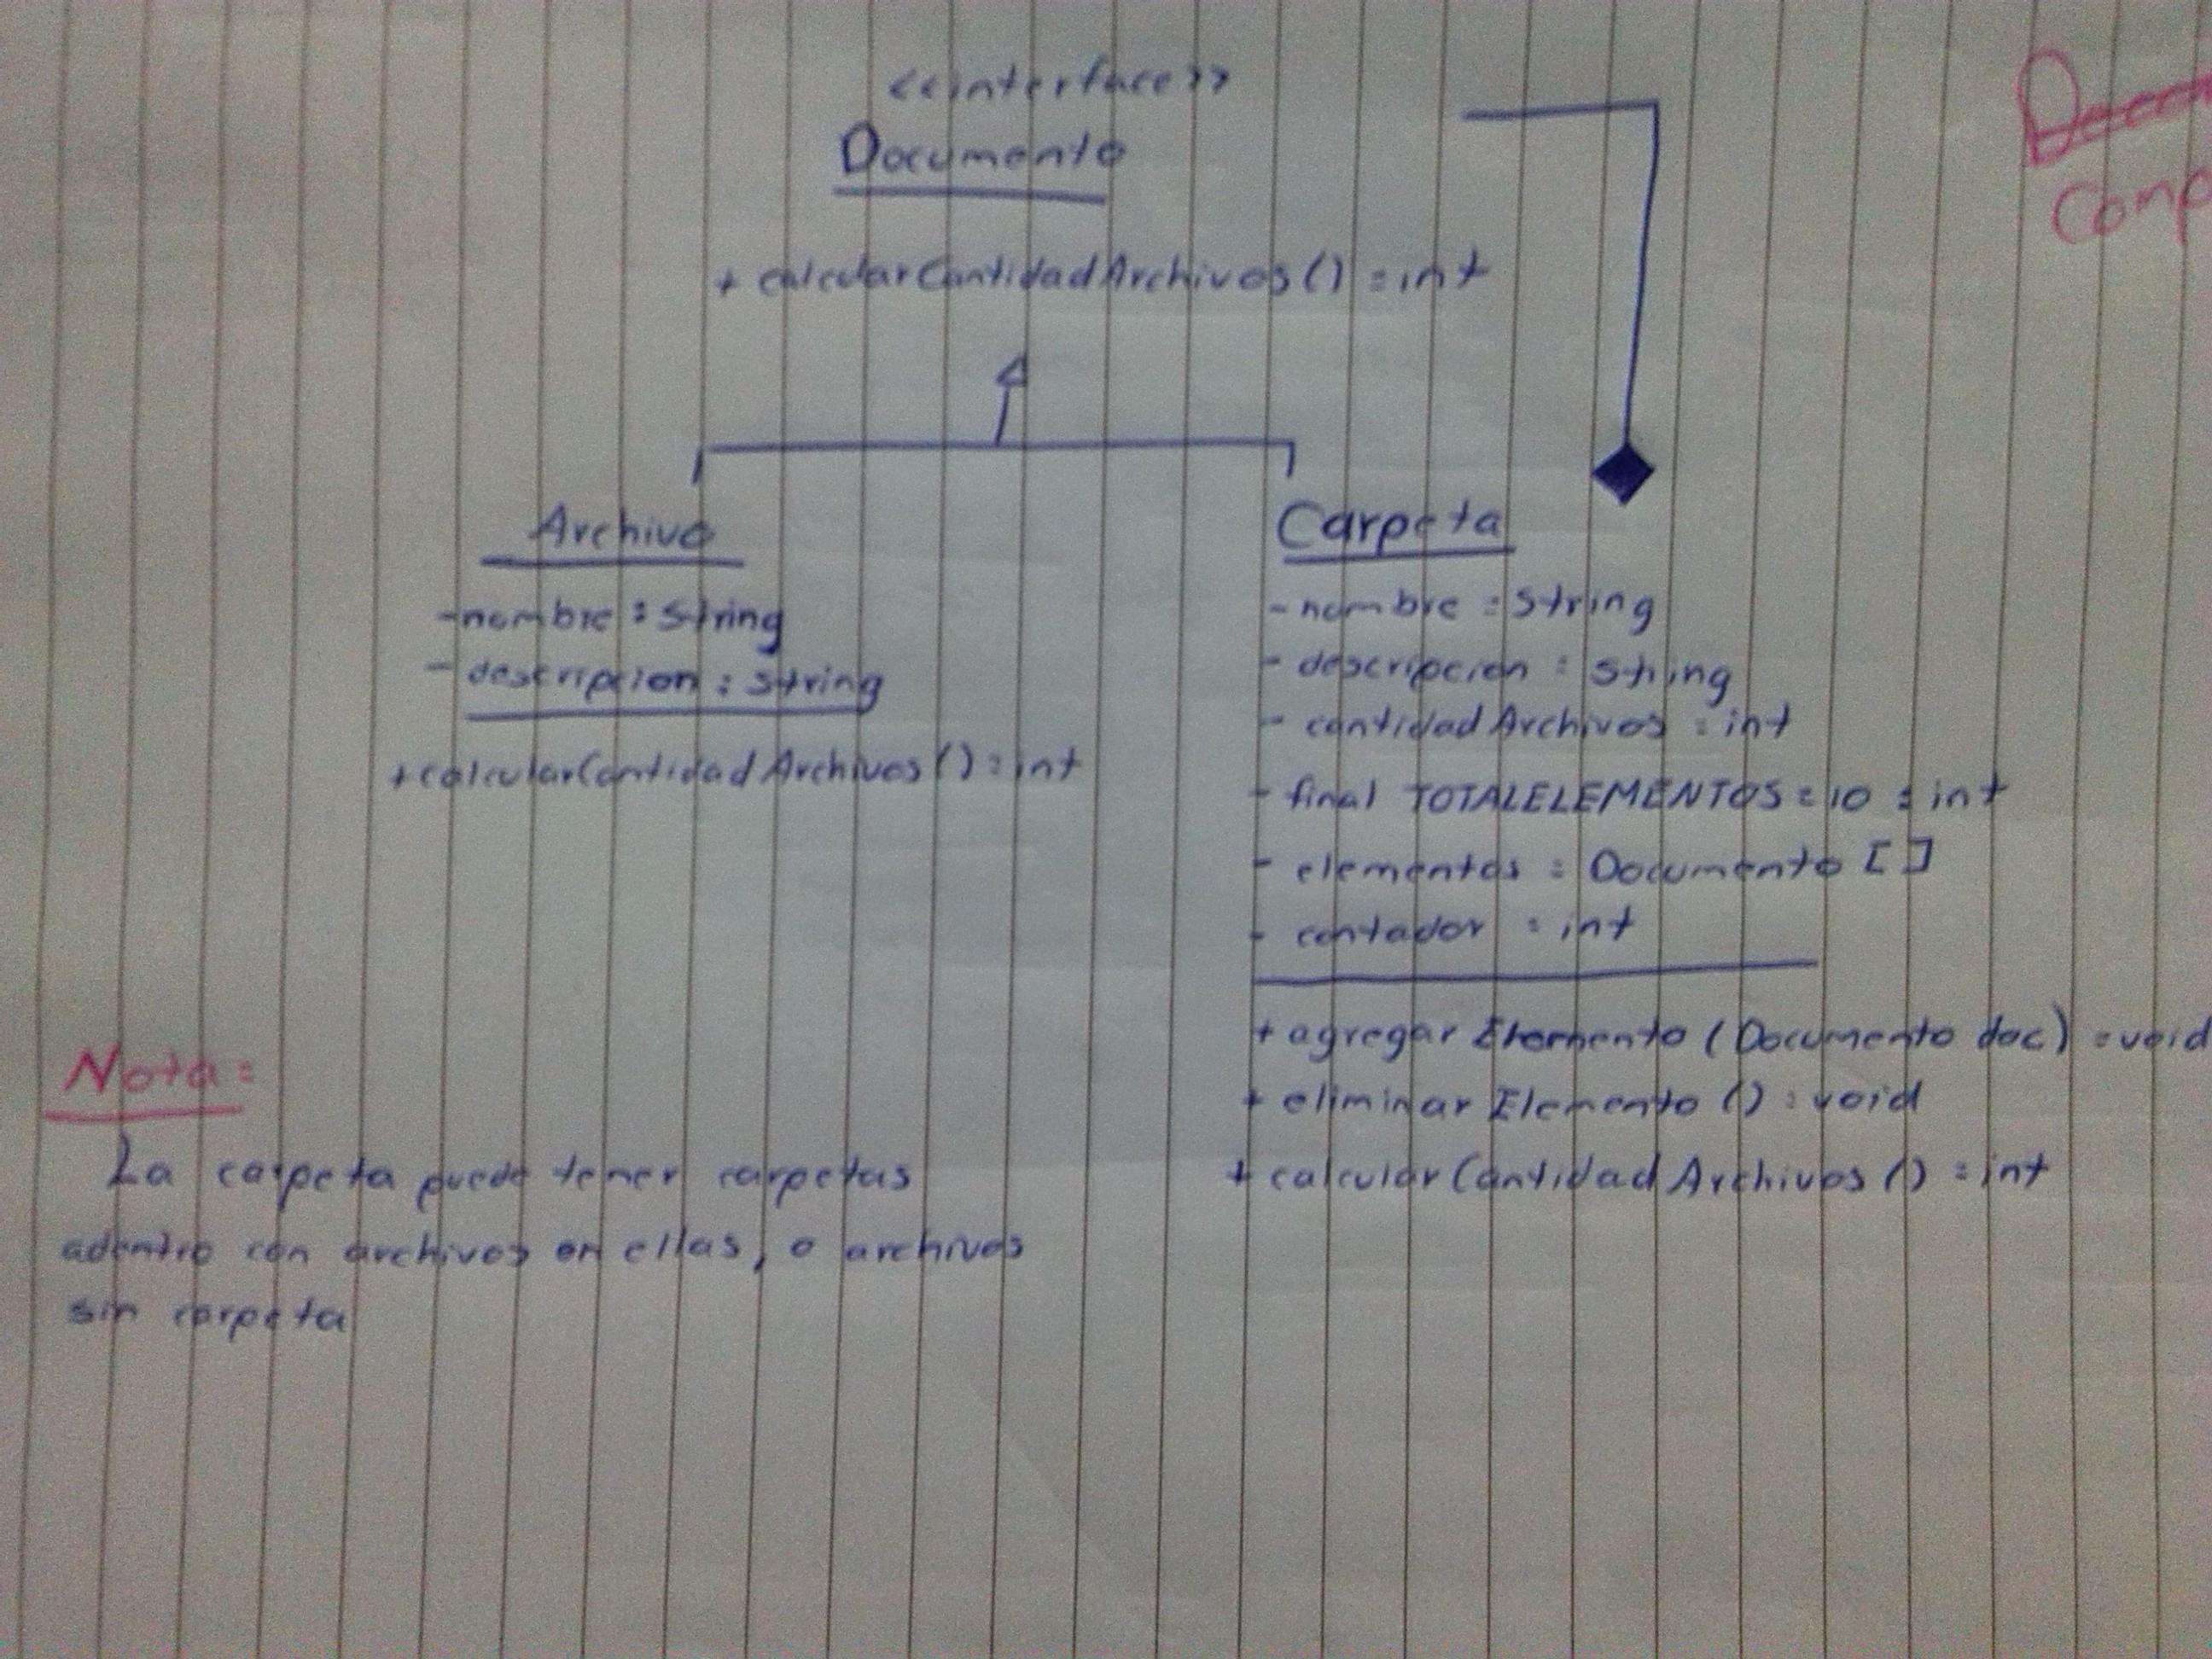 <<interface>>
Documento
+ calcularCantidadArchivos() : int
Archivo
- nombre : String
- descripcion : String
+ calcularCantidadArchivos() : int
Carpeta
- nombre : String
- descripcion : String
- cantidadArchivos : int
- final TOTALELEMENTOS = 10 : int
- elementos : Documento []
- contador : int
+ agregarElemento (Documento doc) : void
+ eliminarElemento () : void
+ calcularCantidadArchivos () : int
Nota:
La carpeta puede tener carpetas
adentro con archivos en ellas, o archivos
sin carpeta